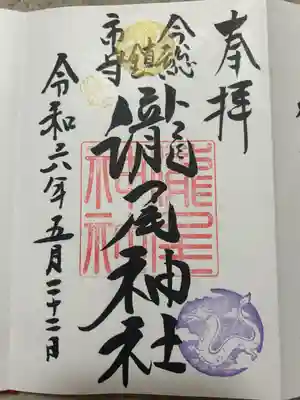 奉拝
今市
総鎮守
瀧尾神社
瀧尾
神社
令和六年五月二十二日